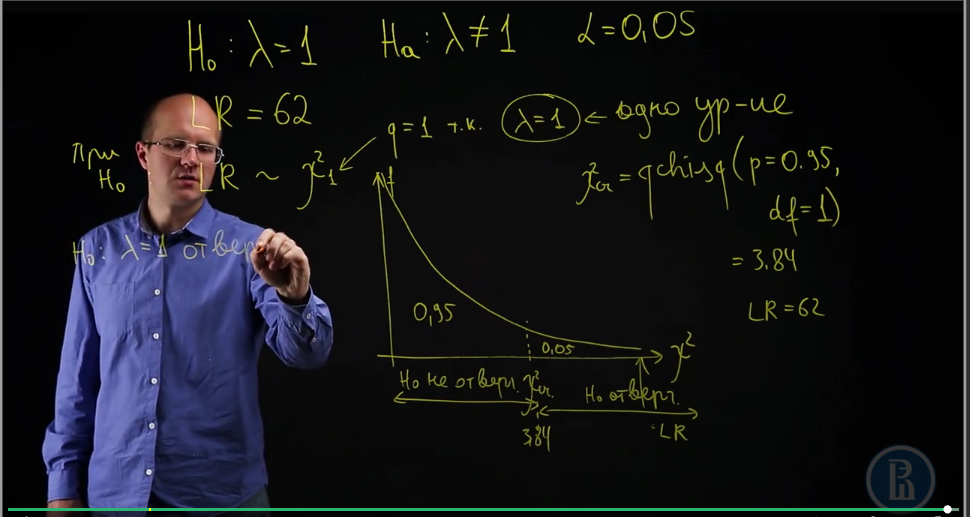 H₀: λ=1 Hₐ: λ≠1 α=0,05
LR = 62
q=1 т.к. λ=1 ← одно ур-ие
При H₀ LR ~ χ²₁
χ²cr = qchisq(p=0.95,
df=1)
= 3.84
LR=62
H₀: λ=1 отвер
f
0,95
0,05
χ²
H₀ не отверг. χ²cr.
H₀ отверг.
3,84
LR